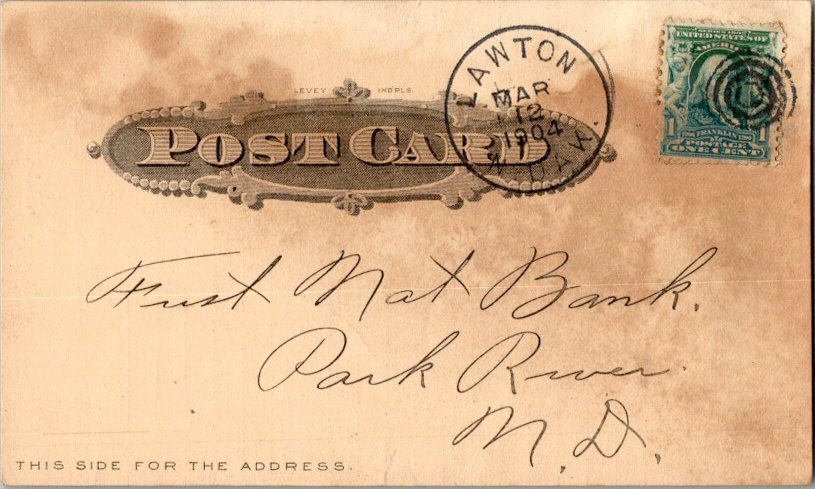 LEVEY INDPLS.
POST CARD
LAWTON
MAR
12
1904
N. DAK.
SERIES 1902
UNITED STATES OF
AMERICA
1 FRANKLIN 1
POSTAGE
ONE CENT
First Nat Bank.
Park River.
N. D.
THIS SIDE FOR THE ADDRESS.